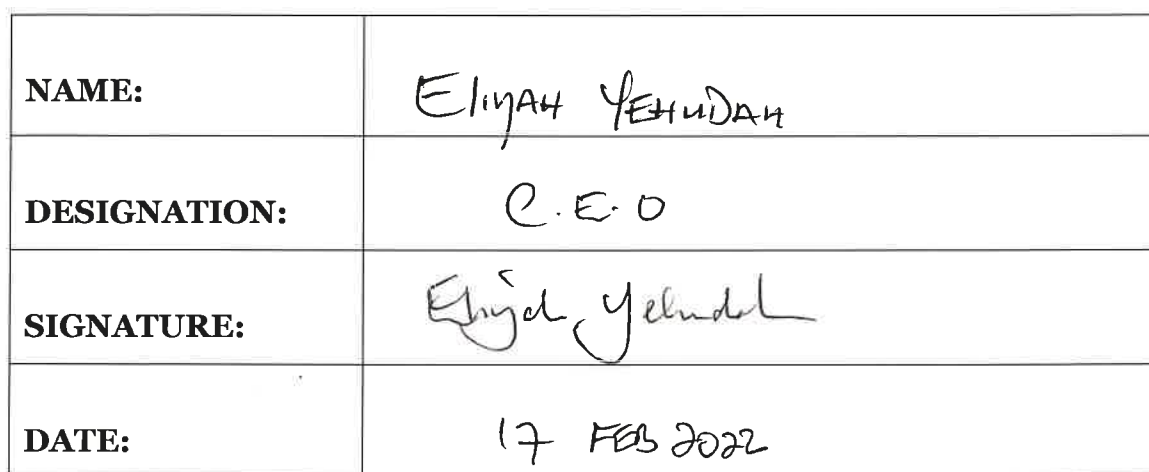 NAME: EliyAH YEHUDAH
DESIGNATION: C.E.O
SIGNATURE: Eliyah Yehudah
DATE: 17 FEB 2022